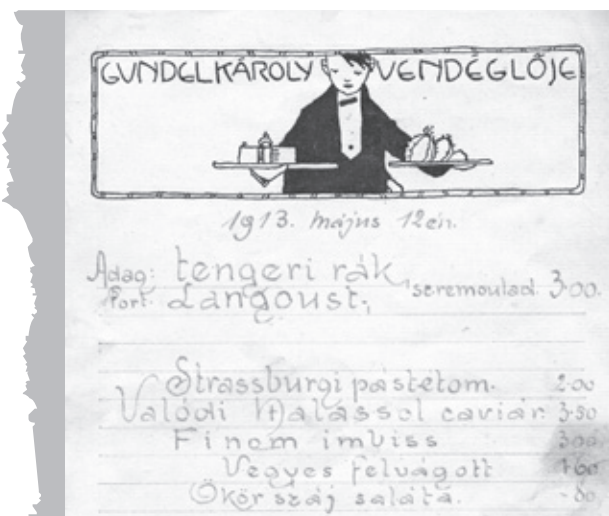 GUNDEL KÁROLY VENDÉGLŐJE
1913. május 12én.
Adag: tengeri rák
Port: Langoust, seremoulad. 3·00.
Strassburgi pástetom. 2·00
Valódi Malassol caviár 3·50
Finom imbiss 3·00
Vegyes felvágott 1·60
Ökör száj saláta. -80.